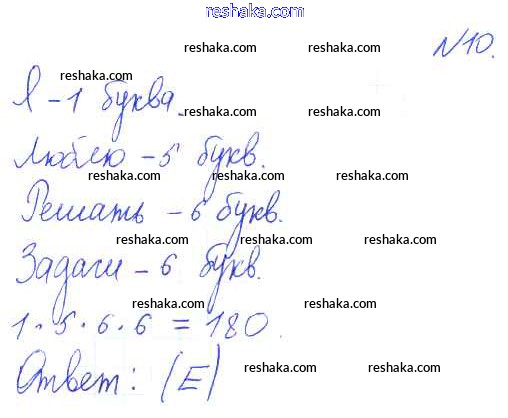 reshaka.com
reshaka.com
N10.
reshaka.com
Я - 1 буква.
reshaka.com reshaka.com
Люблю - 5 букв.
reshaka.com reshaka.com
Решать - 6 букв.
reshaka.com reshaka.com
Задачи - 6 букв.
reshaka.com reshaka.com
1 · 5 · 6 · 6 = 180.
reshaka.com reshaka.com
Ответ: (E)
reshaka.com